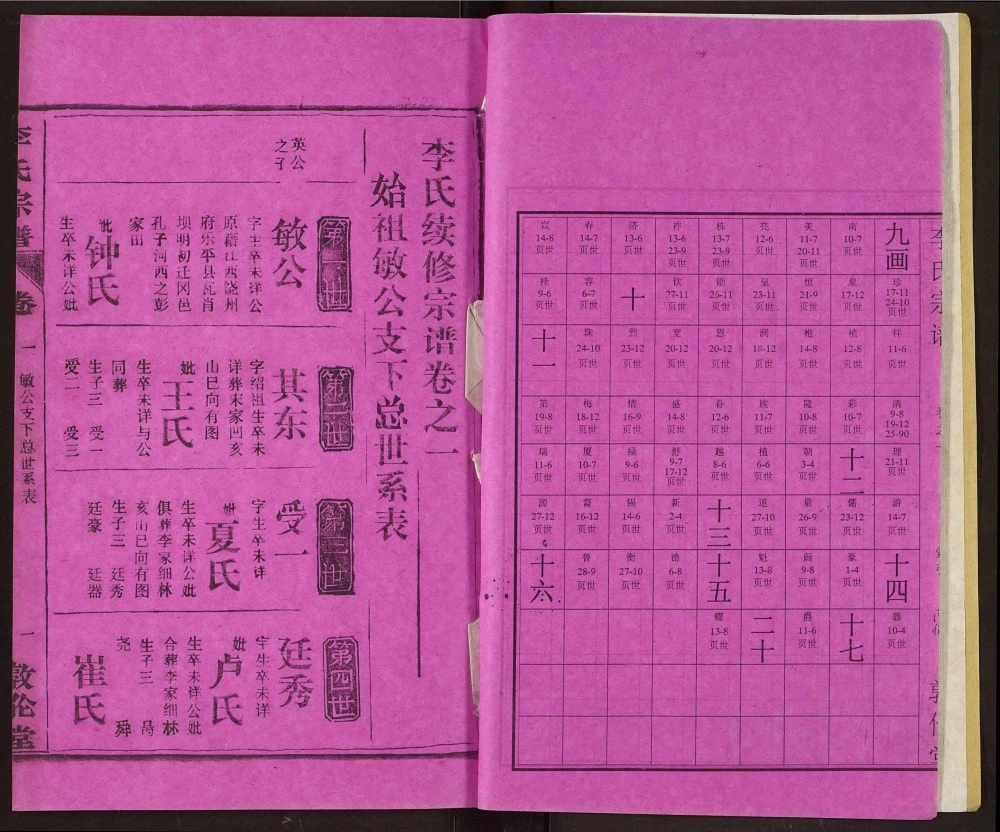 李氏宗谱
九画
南
10-7
页世
美
11-7
20-11
页世
亮
12-6
页世
栋
13-7
23-9
页世
祚
13-6
23-9
页世
济
13-6
页世
春
14-7
页世
宣
14-8
页世
珍
17-11
24-10
页世
泉
17-12
页世
恒
21-9
页世
皇
23-11
页世
勋
26-11
页世
钦
27-11
页世
十
容
6-7
页世
桂
9-6
页世
祥
11-6
页世
桢
12-8
页世
袍
14-8
页世
润
18-12
页世
恩
20-12
页世
宽
20-12
页世
烈
23-12
页世
珠
24-10
页世
十一
清
9-8
19-12
25-90
页世
彩
10-7
页世
隆
10-8
页世
族
11-7
页世
眷
12-6
页世
盛
14-8
页世
情
16-9
页世
梅
18-12
页世
第
19-8
页世
理
21-11
页世
十二
朝
3-4
页世
植
6-6
页世
越
8-6
页世
舒
9-7
17-12
页世
禄
9-6
页世
厦
10-7
页世
瑞
11-6
页世
游
14-7
页世
儒
23-12
页世
量
26-9
页世
道
27-10
页世
十三
新
2-4
页世
锡
14-6
页世
裔
16-12
页世
源
27-12
页世
十四
豪
1-4
页世
蔚
9-8
页世
魁
13-8
页世
十五
德
6-8
页世
衡
27-10
页世
鲁
28-9
页世
十六
器
10-4
页世
十七
爵
11-6
页世
二十
耀
13-8
页世
李氏续修宗谱卷之一
始祖敏公支下总世系表
英公
之子
第一世
敏公
字生卒未详公
原籍江西饶州
府乐平县瓦肖
坝明初迁冈邑
孔子河西之彭
家田
妣钟氏
生卒未详公妣
第二世
其东
字绍祖生卒未
详葬宋家凹亥
山巳向有图
妣王氏
生卒未详与公
同葬
生子三 受一
受二 受三
第三世
受一
字生卒未详
妣夏氏
生卒未详公妣
俱葬李家细林
亥山巳向有图
生子三 廷秀
廷豪 廷器
第四世
廷秀
字生卒未详
妣卢氏
生卒未详公妣
合葬李家细林
生子三
尧 舜
崔氏
李氏宗谱
卷
一
敏公支下总世系表
一
敦伦堂